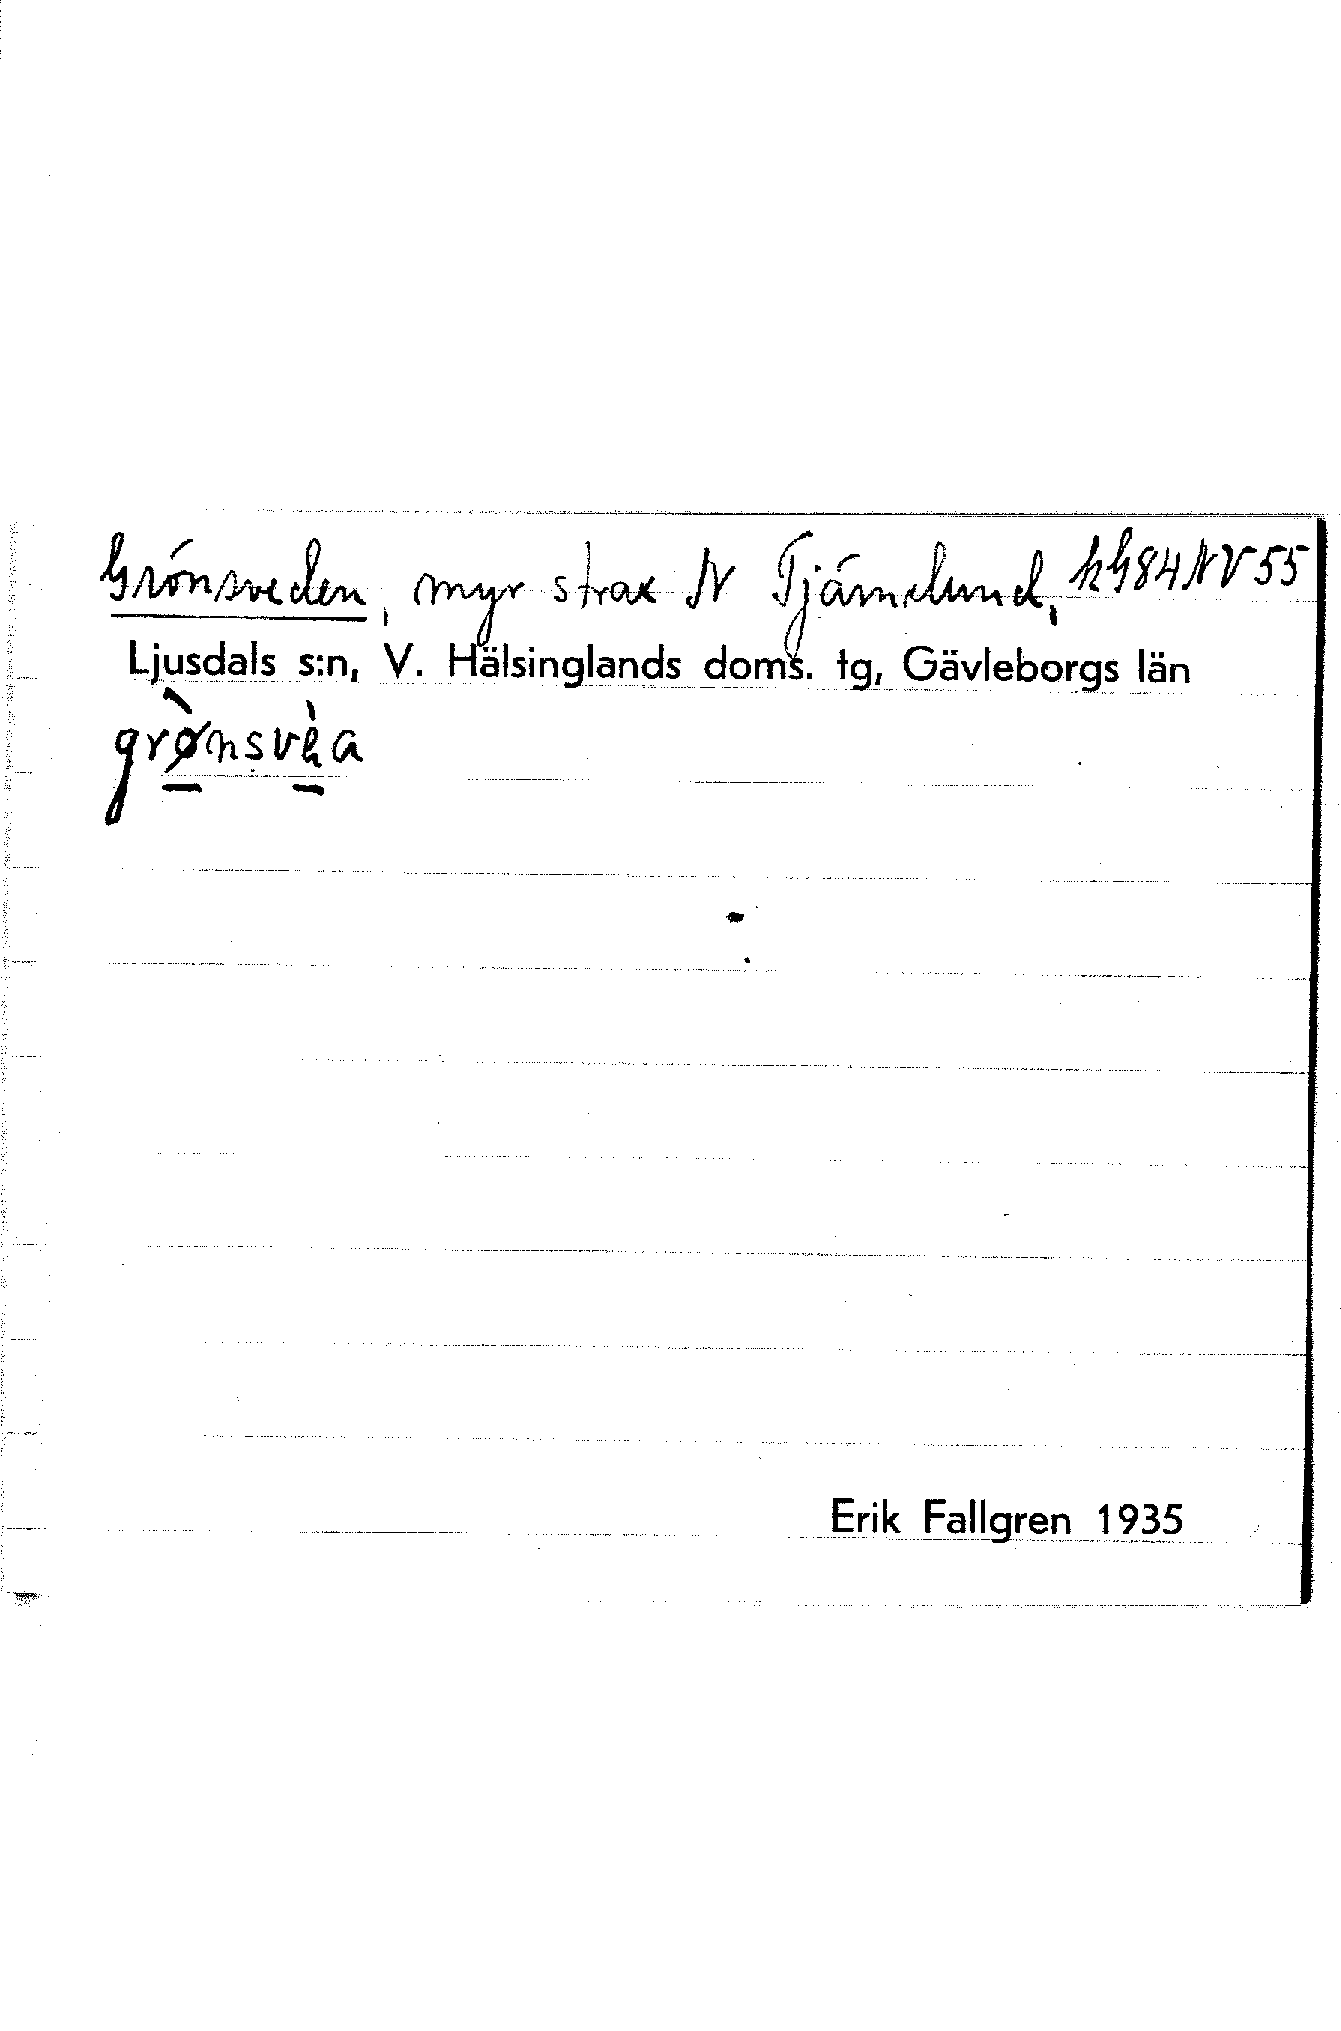 Grönsveden, myr strax N Tjärnelund, kh84NV55
Ljusdals s:n, V. Hälsinglands doms. tg, Gävleborgs län
grø̀nsvèa
Erik Fallgren 1935